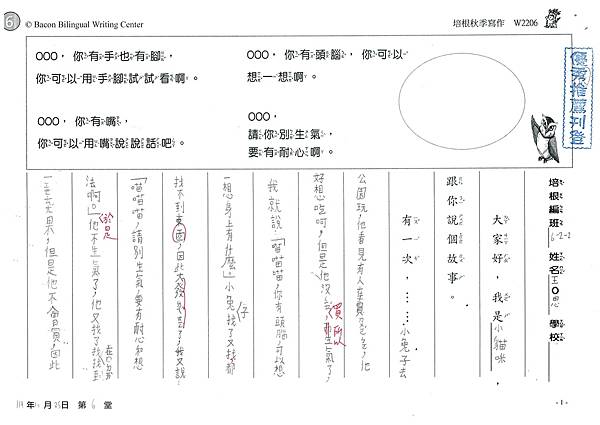 6
© Bacon Bilingual Writing Center
培根秋季寫作 W2206
優秀推薦刊登
OOO，你有手也有腳，
你可以用手腳試試看啊。
OOO，你有頭腦，你可以
想一想啊。
OOO，你有嘴，
你可以用嘴說說話吧。
OOO，
請你別生氣，
要有耐心啊。
培根編班 6-2-2 姓名 王O思 學校
大家好，我是小貓咪
跟你說個故事。
有一次，……小兔子去
公園玩，他看見有人在賣
好想吃呵，但是他沒 買所以 生氣了，
我就說：「喵喵喵，你有頭腦，可以想
一想身上有什麼。」小兔仔找了又找都
找不到東西，因此大發 了，我又說：
「喵喵喵，請別生氣，要有耐心和想
法啊。」於是他不生氣了，他又找了找找到
但是他不會買，因此
年 月 日 第 6 堂
-1-